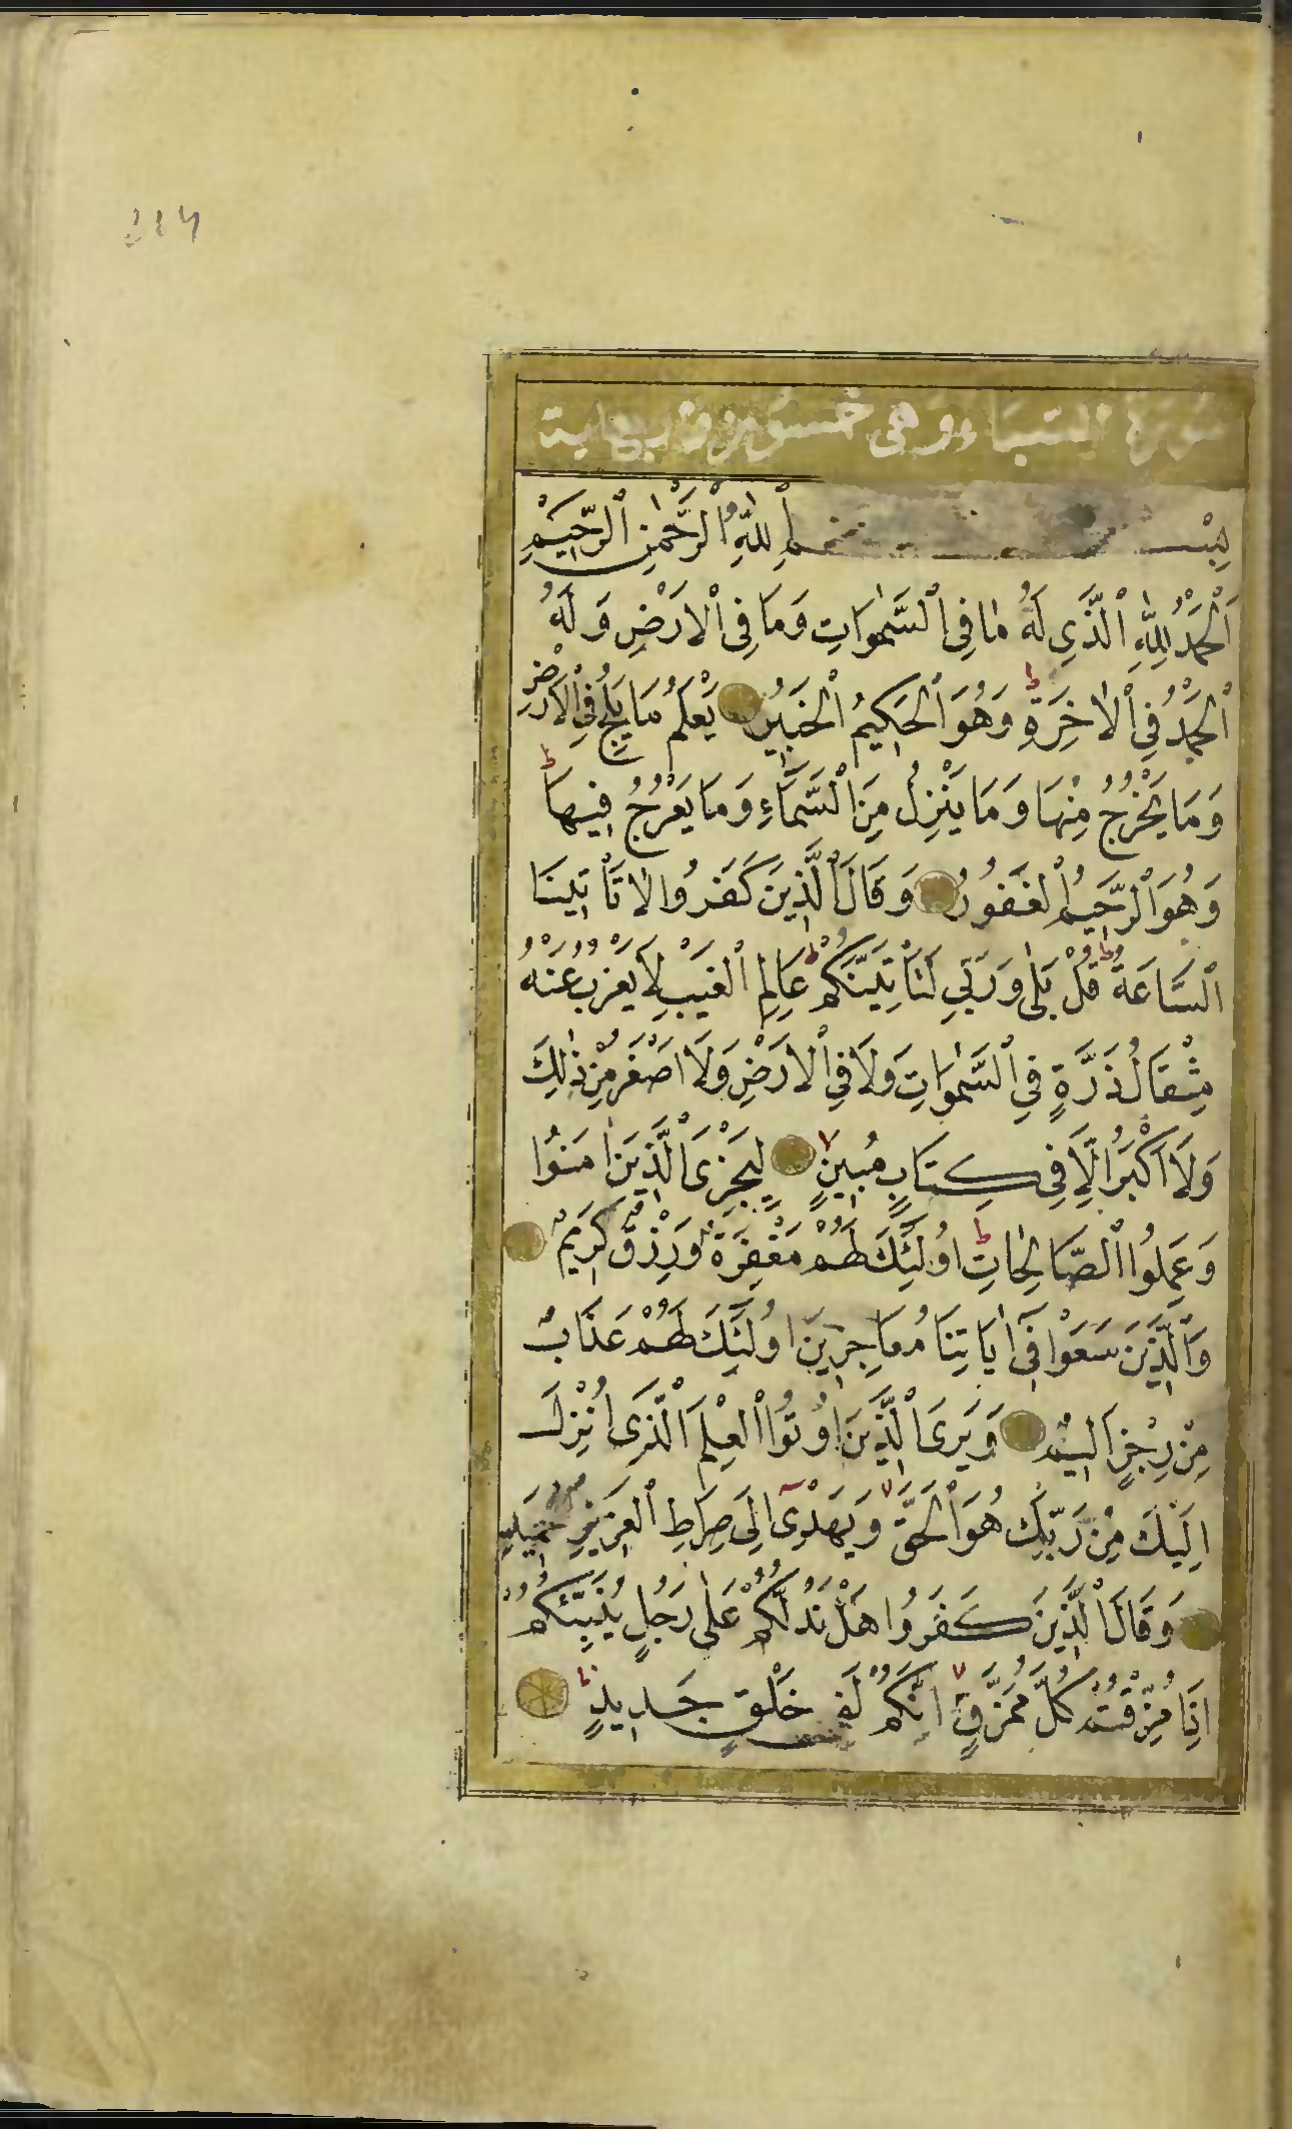 سورة السباء وهي خمسون واربع اية
بِسْمِ اللّٰهِ الرَّحْمٰنِ الرَّحِيمِ
اَلْحَمْدُ لِلّٰهِ الَّذِي لَهُ مَا فِي السَّمٰوَاتِ وَمَا فِي الْاَرْضِ وَلَهُ
الْحَمْدُ فِي الْاٰخِرَةِ ط وَهُوَ الْحَكِيمُ الْخَبِيرُ يَعْلَمُ مَا يَلِجُ فِي الْاَرْضِ
وَمَا يَخْرُجُ مِنْهَا وَمَا يَنْزِلُ مِنَ السَّمَآءِ وَمَا يَعْرُجُ فِيهَا ط
وَهُوَ الرَّحِيمُ الْغَفُورُ وَقَالَ الَّذِينَ كَفَرُوا لَا تَاْتِينَا
السَّاعَةُ ط قُلْ بَلٰى وَرَبِّي لَتَاْتِيَنَّكُمْ ط عَالِمِ الْغَيْبِ لَا يَعْزُبُ عَنْهُ
مِثْقَالُ ذَرَّةٍ فِي السَّمٰوَاتِ وَلَا فِي الْاَرْضِ وَلَا اَصْغَرُ مِنْ ذٰلِكَ
وَلَا اَكْبَرُ اِلَّا فِي كِتَابٍ مُبِينٍ لِيَجْزِيَ الَّذِينَ اٰمَنُوا
وَعَمِلُوا الصَّالِحَاتِ ط اُولٰٓئِكَ لَهُمْ مَغْفِرَةٌ وَرِزْقٌ كَرِيمٌ
وَالَّذِينَ سَعَوْا فِٓي اٰيَاتِنَا مُعَاجِزِينَ اُولٰٓئِكَ لَهُمْ عَذَابٌ
مِنْ رِجْزٍ اَلِيمٌ وَيَرَى الَّذِينَ اُوتُوا الْعِلْمَ الَّذِي اُنْزِلَ
اِلَيْكَ مِنْ رَبِّكَ هُوَ الْحَقَّ وَيَهْدِٓي اِلٰى صِرَاطِ الْعَزِيزِ الْحَمِيدِ
وَقَالَ الَّذِينَ كَفَرُوا هَلْ نَدُلُّكُمْ عَلٰى رَجُلٍ يُنَبِّئُكُمْ
اِذَا مُزِّقْتُمْ كُلَّ مُمَزَّقٍ اِنَّكُمْ لَفِي خَلْقٍ جَدِيدٍ